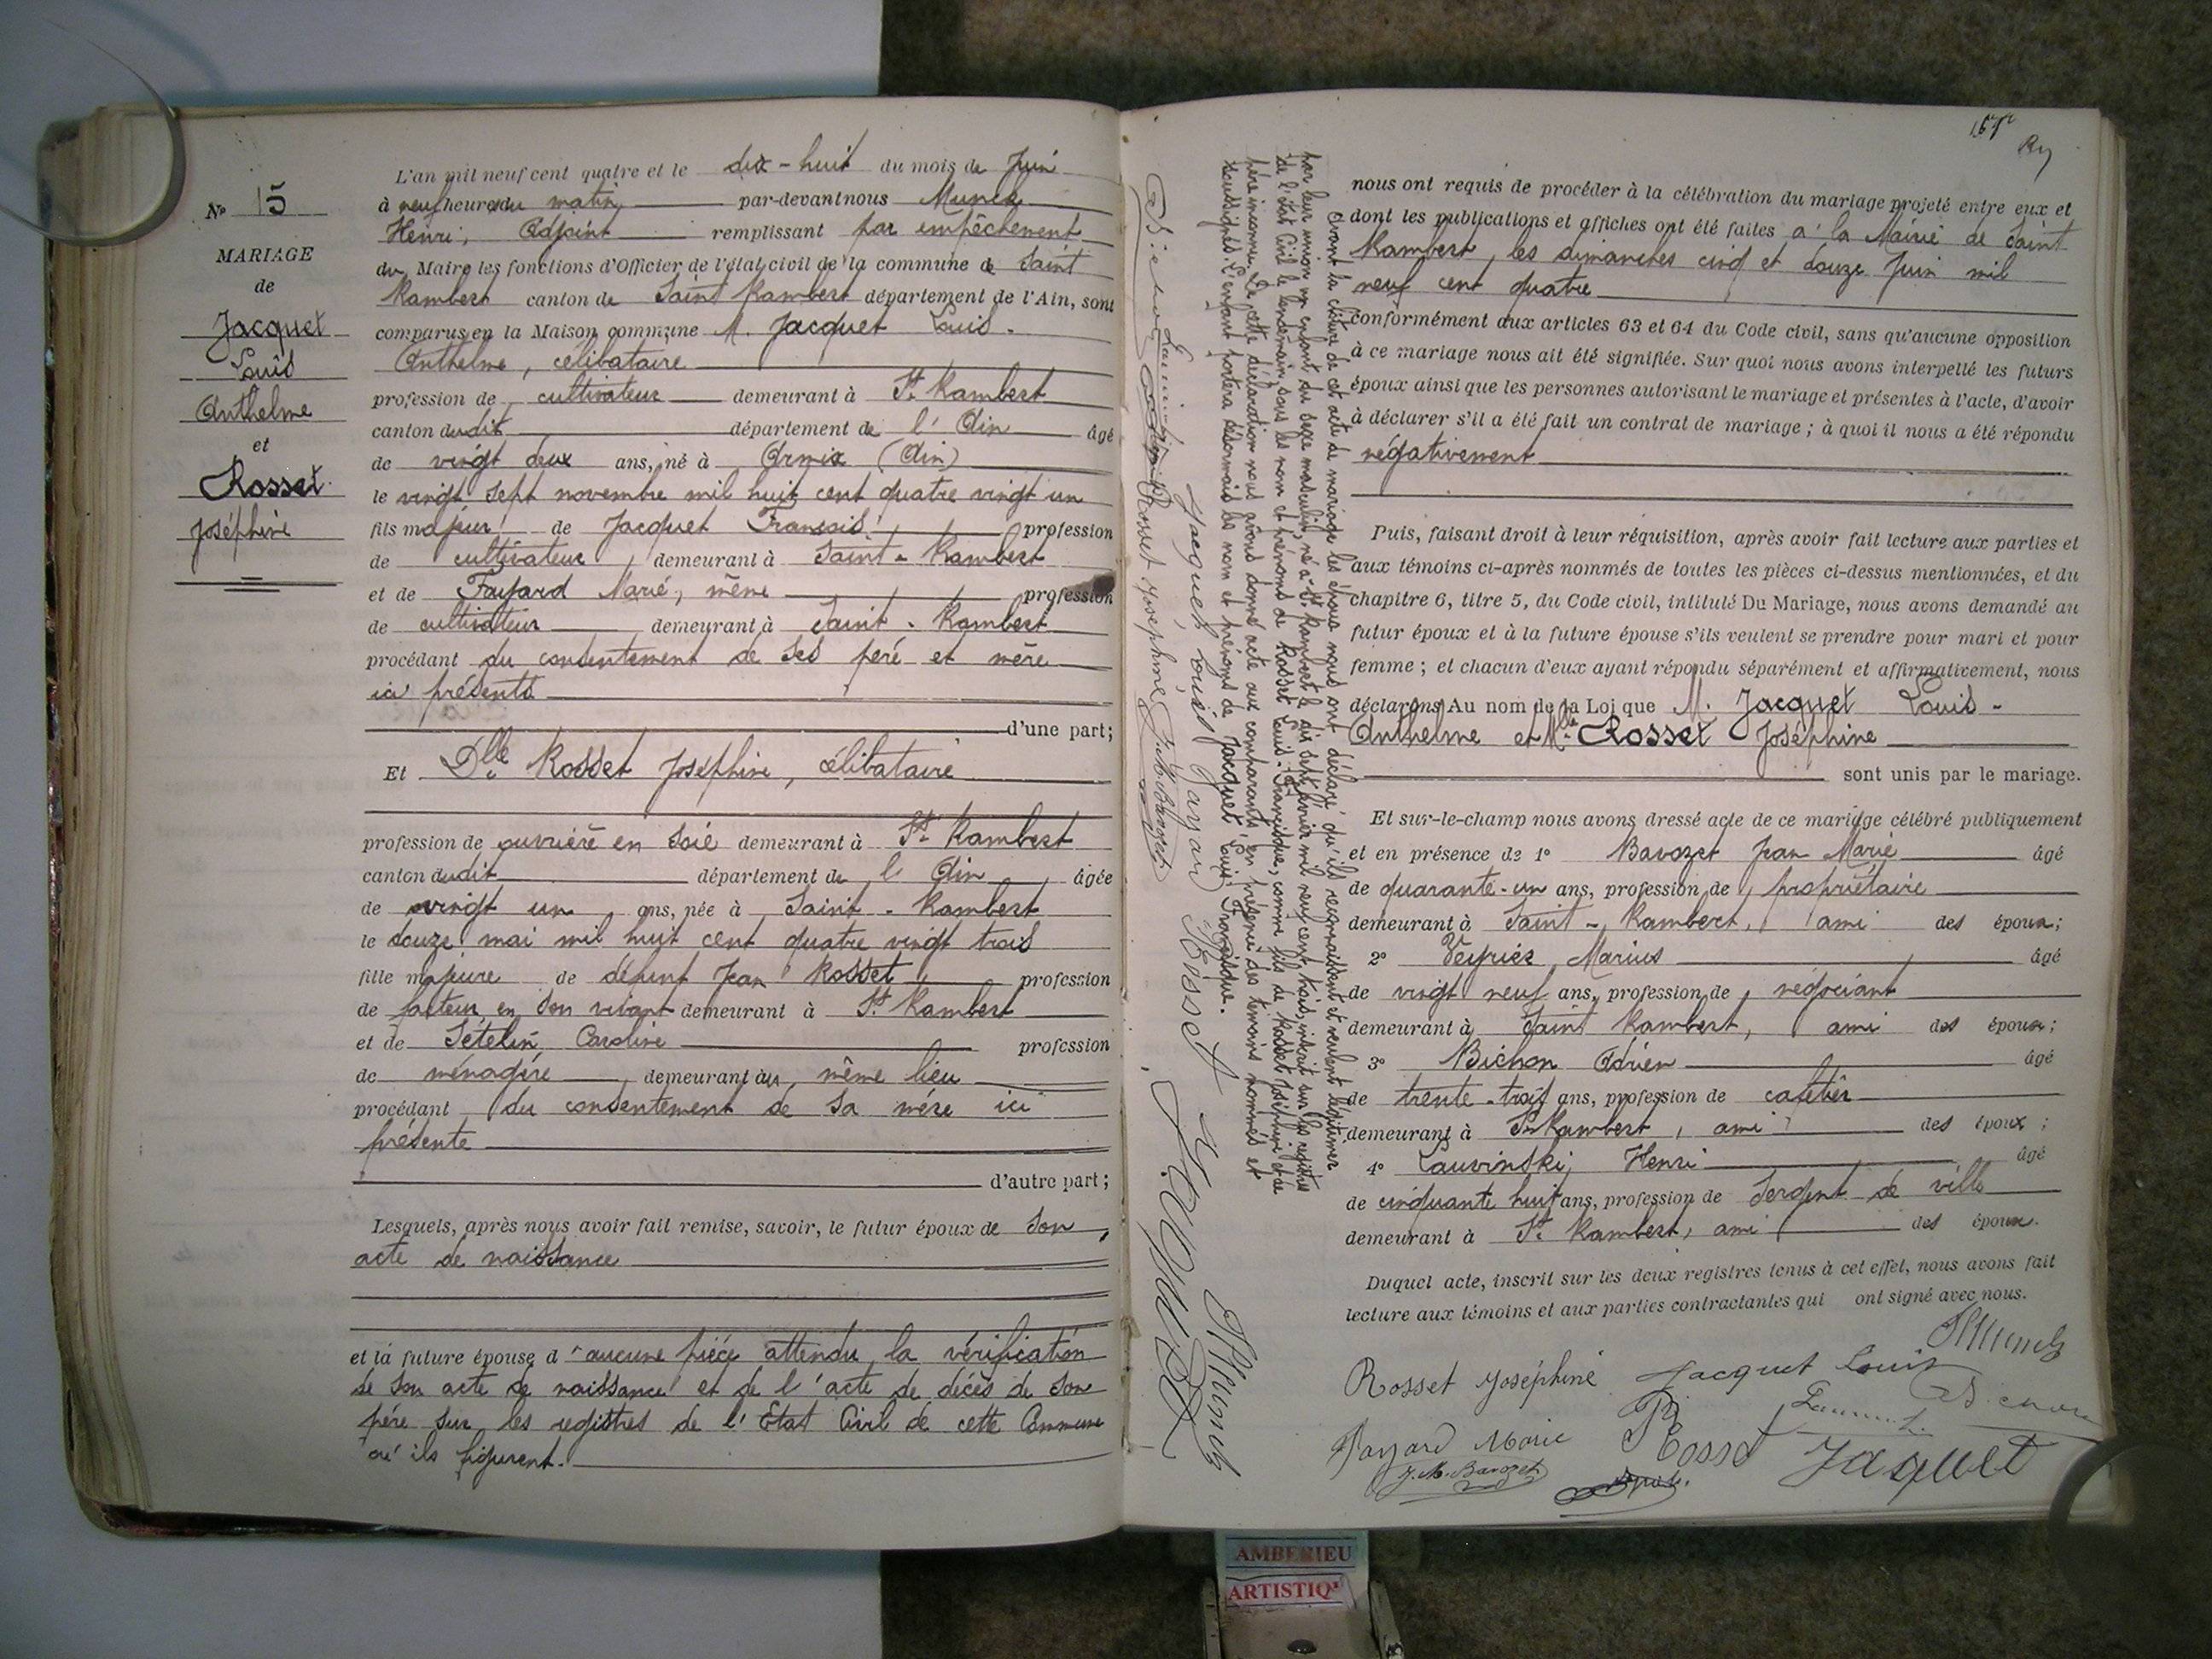 N° 15
MARIAGE
de
Jacquet
Louis
Anthelme
et
Rosset
Joséphine
L'an mil neuf cent quatre et le dix-huit du mois de Juin
à neuf heures du matin par-devant nous
Henri, Adjoint remplissant par empêchement
du Maire les fonctions d'Officier de l'état civil de la commune de Saint
Rambert canton de Saint Rambert département de l'Ain, sont
comparus en la Maison commune M. Jacquet Louis-
Anthelme, célibataire
profession de cultivateur demeurant à St Rambert
canton dudit département de l'Ain âgé
de vingt deux ans, né à Armix (Ain)
le vingt sept novembre mil huit cent quatre vingt un
fils majeur de Jacquet François profession
de cultivateur demeurant à Saint-Rambert
et de Fayard Marie, même profession
de cultivateur demeurant à Saint-Rambert
procédant du consentement de ses père et mère
ici présents
d'une part;
Et Dlle Rosset Joséphine, célibataire
profession de ouvrière en soie demeurant à St Rambert
canton dudit département de l'Ain âgée
de vingt un ans, née à Saint-Rambert
le douze mai mil huit cent quatre vingt trois
fille majeure de défunt Jean Rosset profession
de facteur en son vivant demeurant à St Rambert
et de Sételin Caroline profession
de ménagère demeurant au même lieu
procédant du consentement de sa mère ici
présente
d'autre part;
Lesquels, après nous avoir fait remise, savoir, le futur époux de son
acte de naissance
et la future épouse d'aucune pièce attendu la vérification
de son acte de naissance et de l'acte de décès de son
père sur les registres de l'Etat Civil de cette Commune
où ils figurent.
Avant la clôture de cet acte de mariage les époux nous ont déclaré qu'ils reconnaissent et veulent légitimer
par leur union un enfant du sexe masculin, né à St Rambert le dix sept janvier mil neuf cent trois, inscrit sur les registres
de l'Etat Civil le lendemain, sous les nom et prénoms de Rosset Louis-Francisque, comme fils de Rosset Joséphine et de
père inconnu. De cette déclaration nous avons donné acte aux comparants en présence des témoins nommés et
soussignés. L'enfant portera désormais les nom et prénoms de Jacquet Louis Francisque.
Jacquet Louis Fayard Rosset
Rosset Joséphine J. M. Bavozet
167
nous ont requis de procéder à la célébration du mariage projeté entre eux et
dont les publications et affiches ont été faites à la Mairie de Saint
Rambert, les dimanches cinq et douze Juin mil
neuf cent quatre
conformément aux articles 63 et 64 du Code civil, sans qu'aucune opposition
à ce mariage nous ait été signifiée. Sur quoi nous avons interpellé les futurs
époux ainsi que les personnes autorisant le mariage et présentes à l'acte, d'avoir
à déclarer s'il a été fait un contrat de mariage; à quoi il nous a été répondu
négativement
Puis, faisant droit à leur réquisition, après avoir fait lecture aux parties et
aux témoins ci-après nommés de toutes les pièces ci-dessus mentionnées, et du
chapitre 6, titre 5, du Code civil, intitulé Du Mariage, nous avons demandé au
futur époux et à la future épouse s'ils veulent se prendre pour mari et pour
femme; et chacun d'eux ayant répondu séparément et affirmativement, nous
déclarons Au nom de la Loi que M. Jacquet Louis-
Anthelme et Mlle Rosset Joséphine
sont unis par le mariage.
Et sur-le-champ nous avons dressé acte de ce mariage célébré publiquement
et en présence de 1° Bavozet Jean Marie âgé
de quarante-un ans, profession de propriétaire
demeurant à Saint-Rambert, ami des époux;
2° Veyriés Marius âgé
de vingt neuf ans, profession de négociant
demeurant à Saint Rambert, ami des époux;
3° Bichon Adrien âgé
de trente-trois ans, profession de cafetier
demeurant à St Rambert, ami des époux;
4° Lauvinski Henri âgé
de cinquante huit ans, profession de Sergent de ville
demeurant à St Rambert, ami des époux.
Duquel acte, inscrit sur les deux registres tenus à cet effet, nous avons fait
lecture aux témoins et aux parties contractantes qui ont signé avec nous.
Rosset Joséphine Jacquet Louis
Fayard Marie Rosset Jaquet
J. M. Bavozet
AMBERIEU
ARTISTIQ